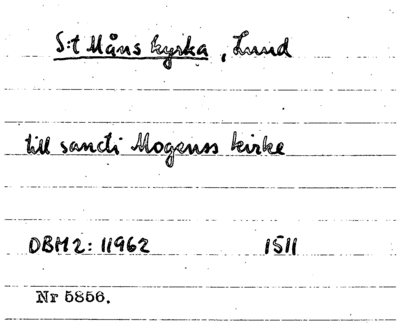 S:t Måns kyrka, Lund
till sancti Mogenss kirke
DBM 2: 11962 1511
Nr 5856.